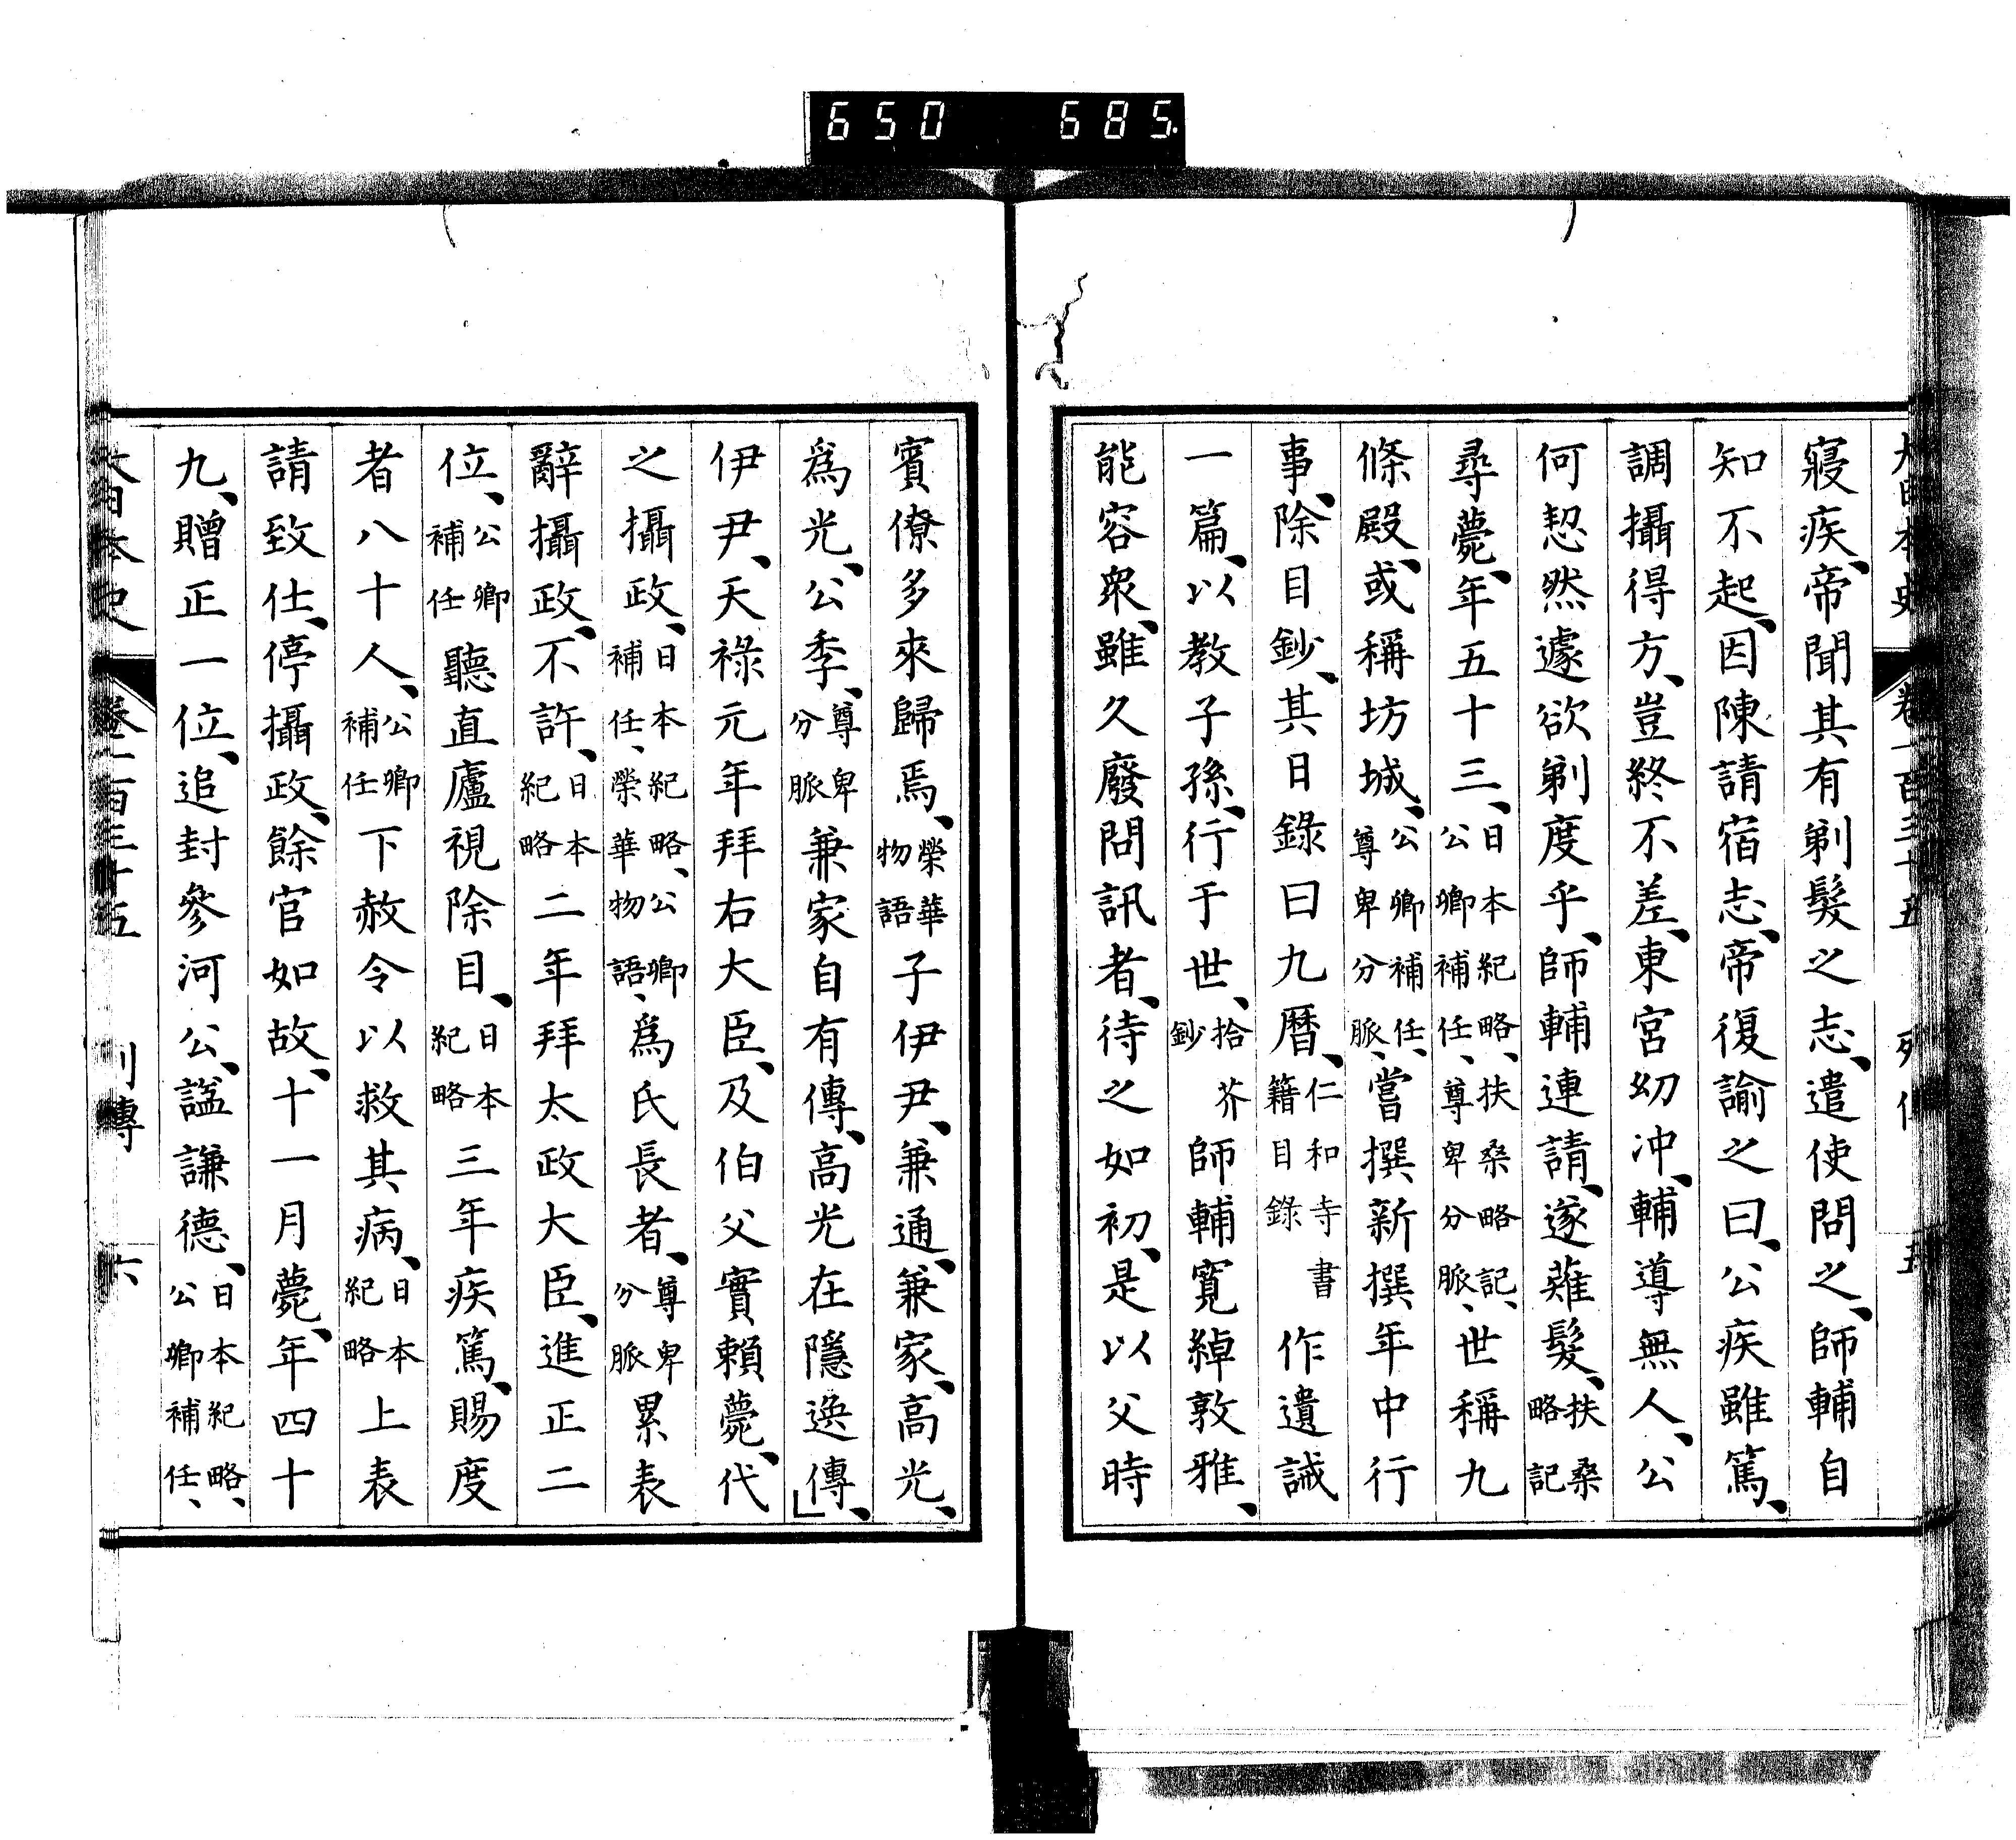 650 685.
大日本史 卷一百三十五 列傳 五
寢疾、帝聞其有剃髮之志、遣使問之、師輔自
知不起、因陳請宿志、帝復諭之曰、公疾雖篤、
調攝得方、豈終不差、東宮幼冲、輔導無人、公
何恝然遽欲剃度乎、師輔連請、遂薙髮、扶桑略記
尋薨、年五十三、日本紀略、扶桑略記、公卿補任、尊卑分脈、世稱九
條殿、或稱坊城、公卿補任、尊卑分脈、嘗撰新撰年中行
事、除目鈔、其日錄曰九暦、仁和寺書籍目錄作遺誡
一篇、以教子孫、行于世、拾芥鈔師輔寛綽敦雅、
能容衆、雖久廢問訊者、待之如初、是以父時
賓僚多來歸焉、榮華物語子伊尹、兼通、兼家、高光、
爲光、公季、尊卑分脈兼家自有傳、高光在隱逸傳、
伊尹、天祿元年拜右大臣、及伯父實賴薨、代
之攝政、日本紀略、公卿補任、榮華物語、爲氏長者、尊卑分脈累表
辭攝政、不許、日本紀略二年拜太政大臣、進正二
位、公卿補任聽直廬視除目、日本紀略三年疾篤、賜度
者八十人、公卿補任下赦令以救其病、日本紀略上表
請致仕、停攝政、餘官如故、十一月薨、年四十
九、贈正一位、追封參河公、諡謙德、日本紀略、公卿補任、
大日本史 卷一百三十五 列傳 六